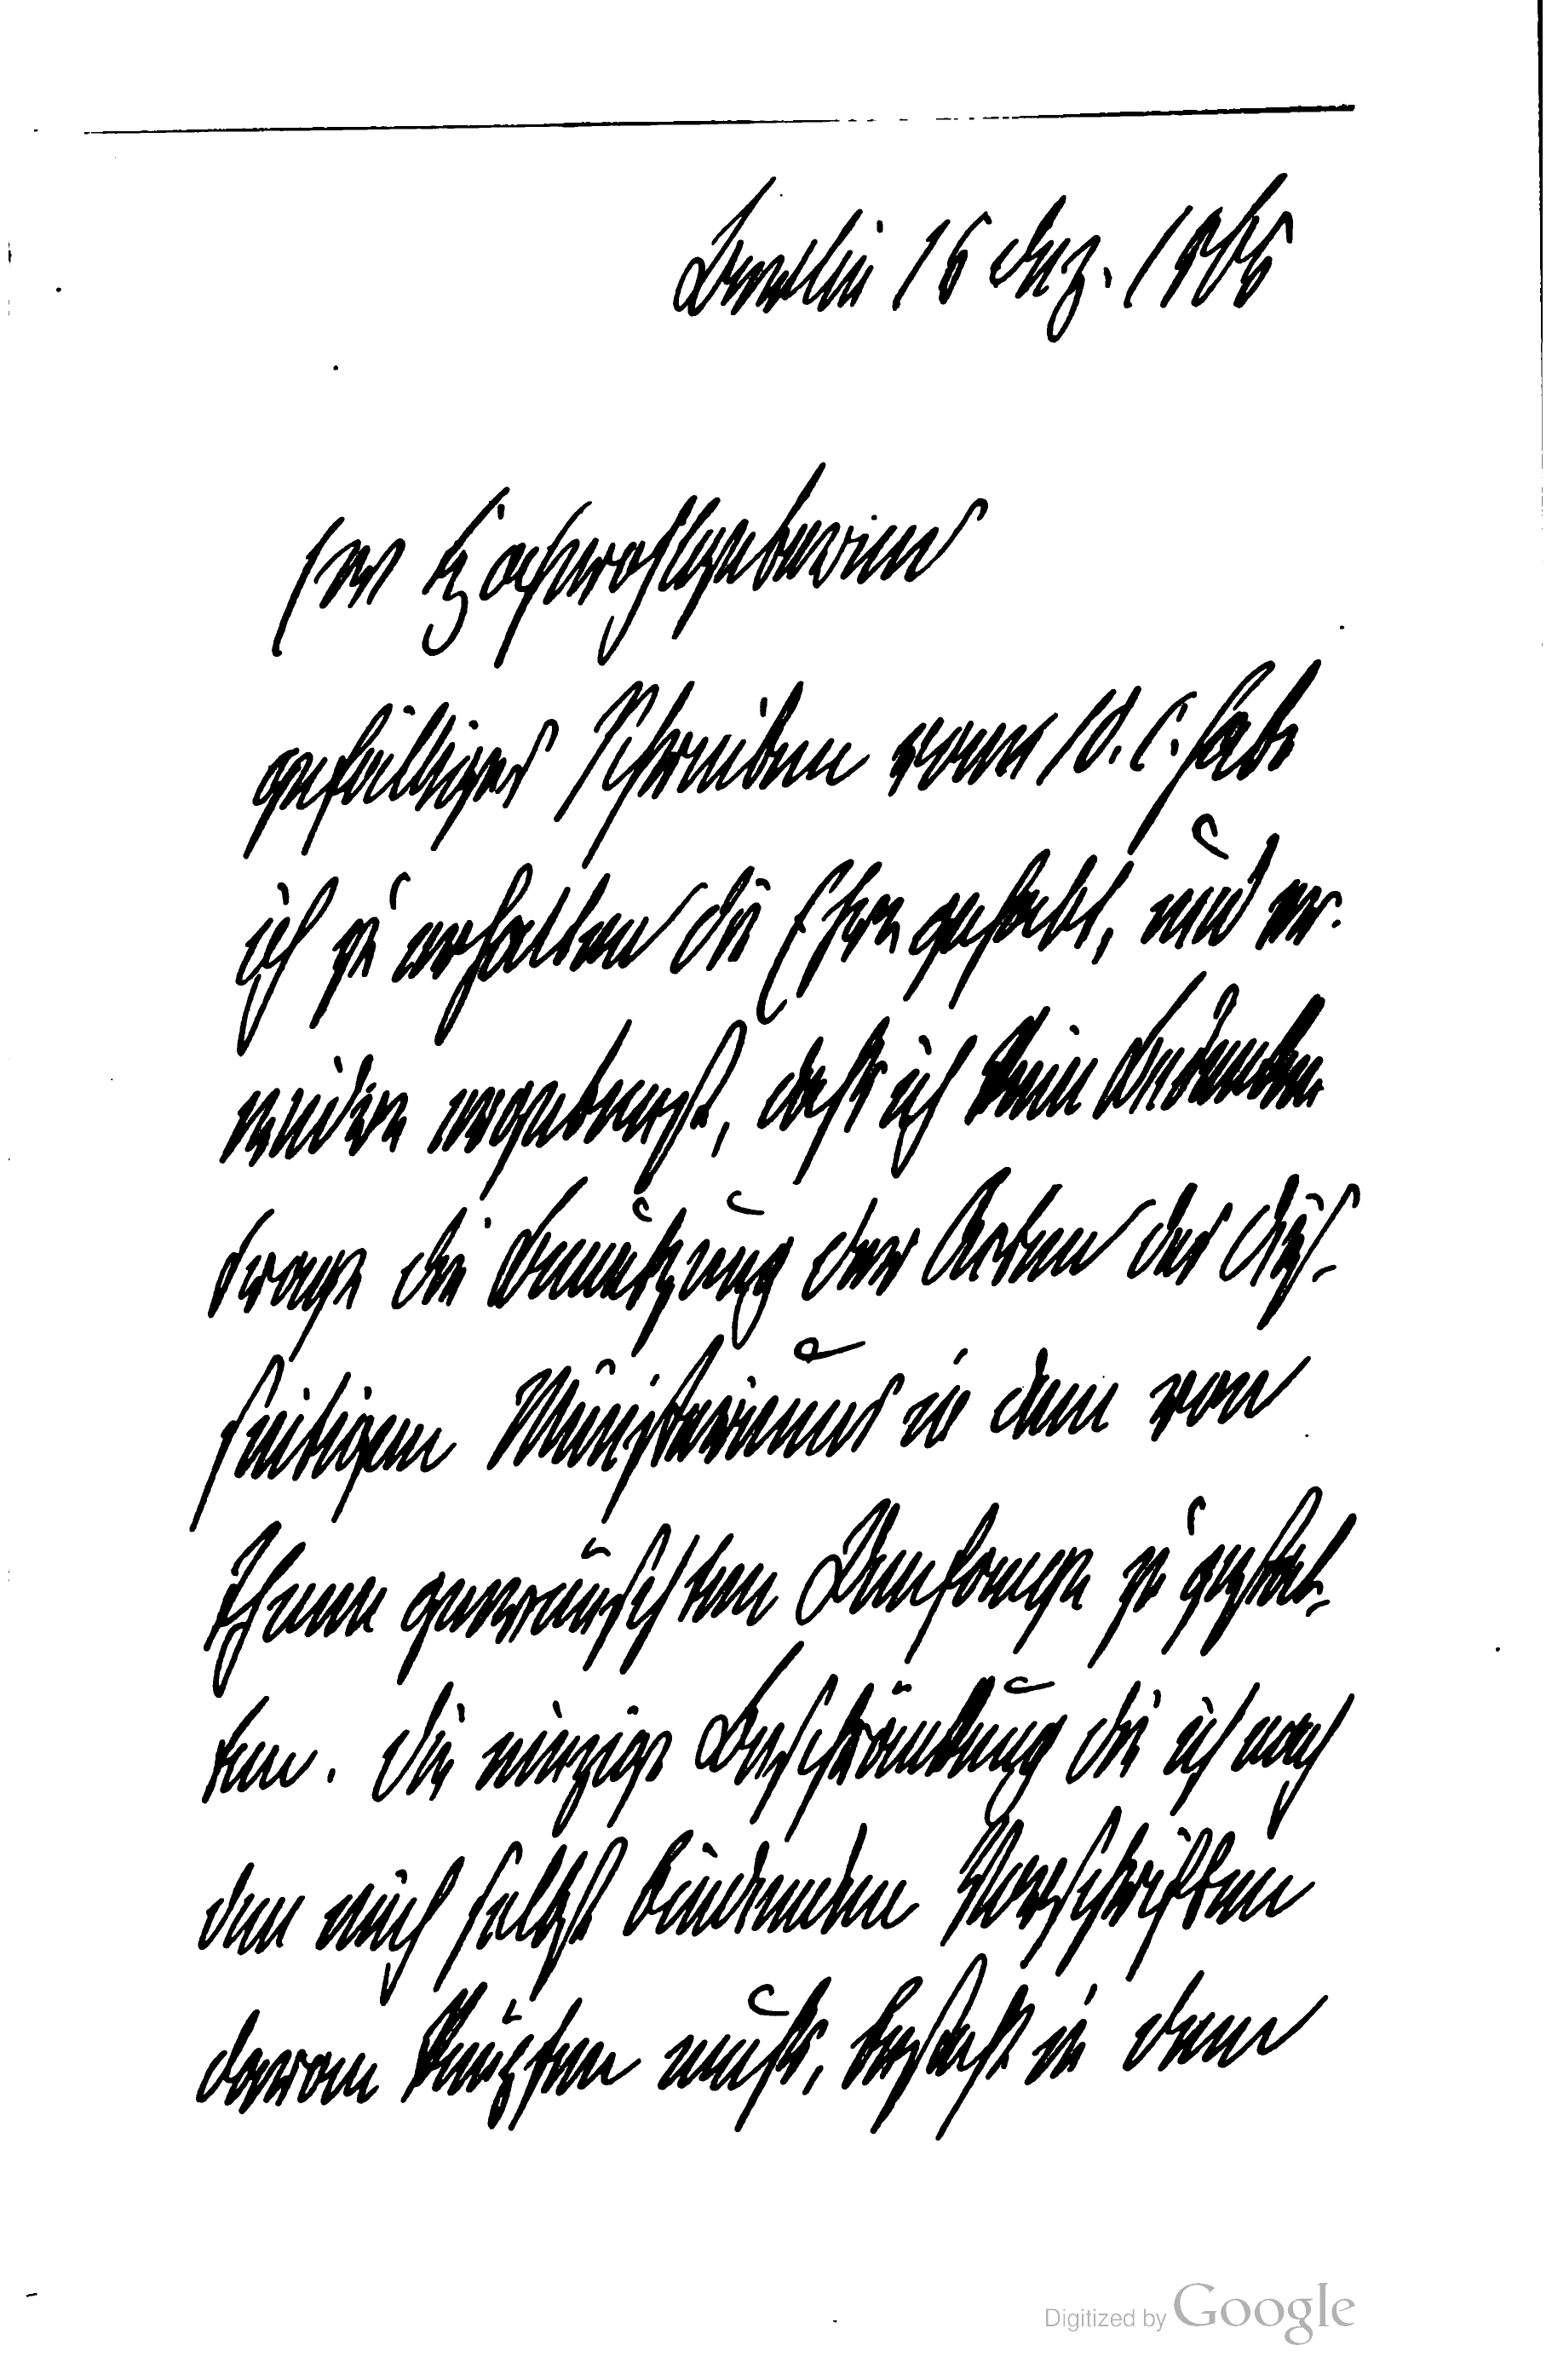 Berlin 16 Dez. 1875
Ew Hochwohlgeboren
gefälliges Schreiben vom 10. c. habe
ich zu erhalten die Ehre gehabt, und er-
widre ergebenst, daß ich kein Bedenken
trage die Benutzung der Akten des dies-
seitigen Ministeriums in dem von
Ihnen gewünschten Umfange zu gestat-
ten. Die einzige Beschränkung die ich nach
den mich selbst bindenden Vorschriften
daran knüpfen muß, besteht in dem
Digitized by Google